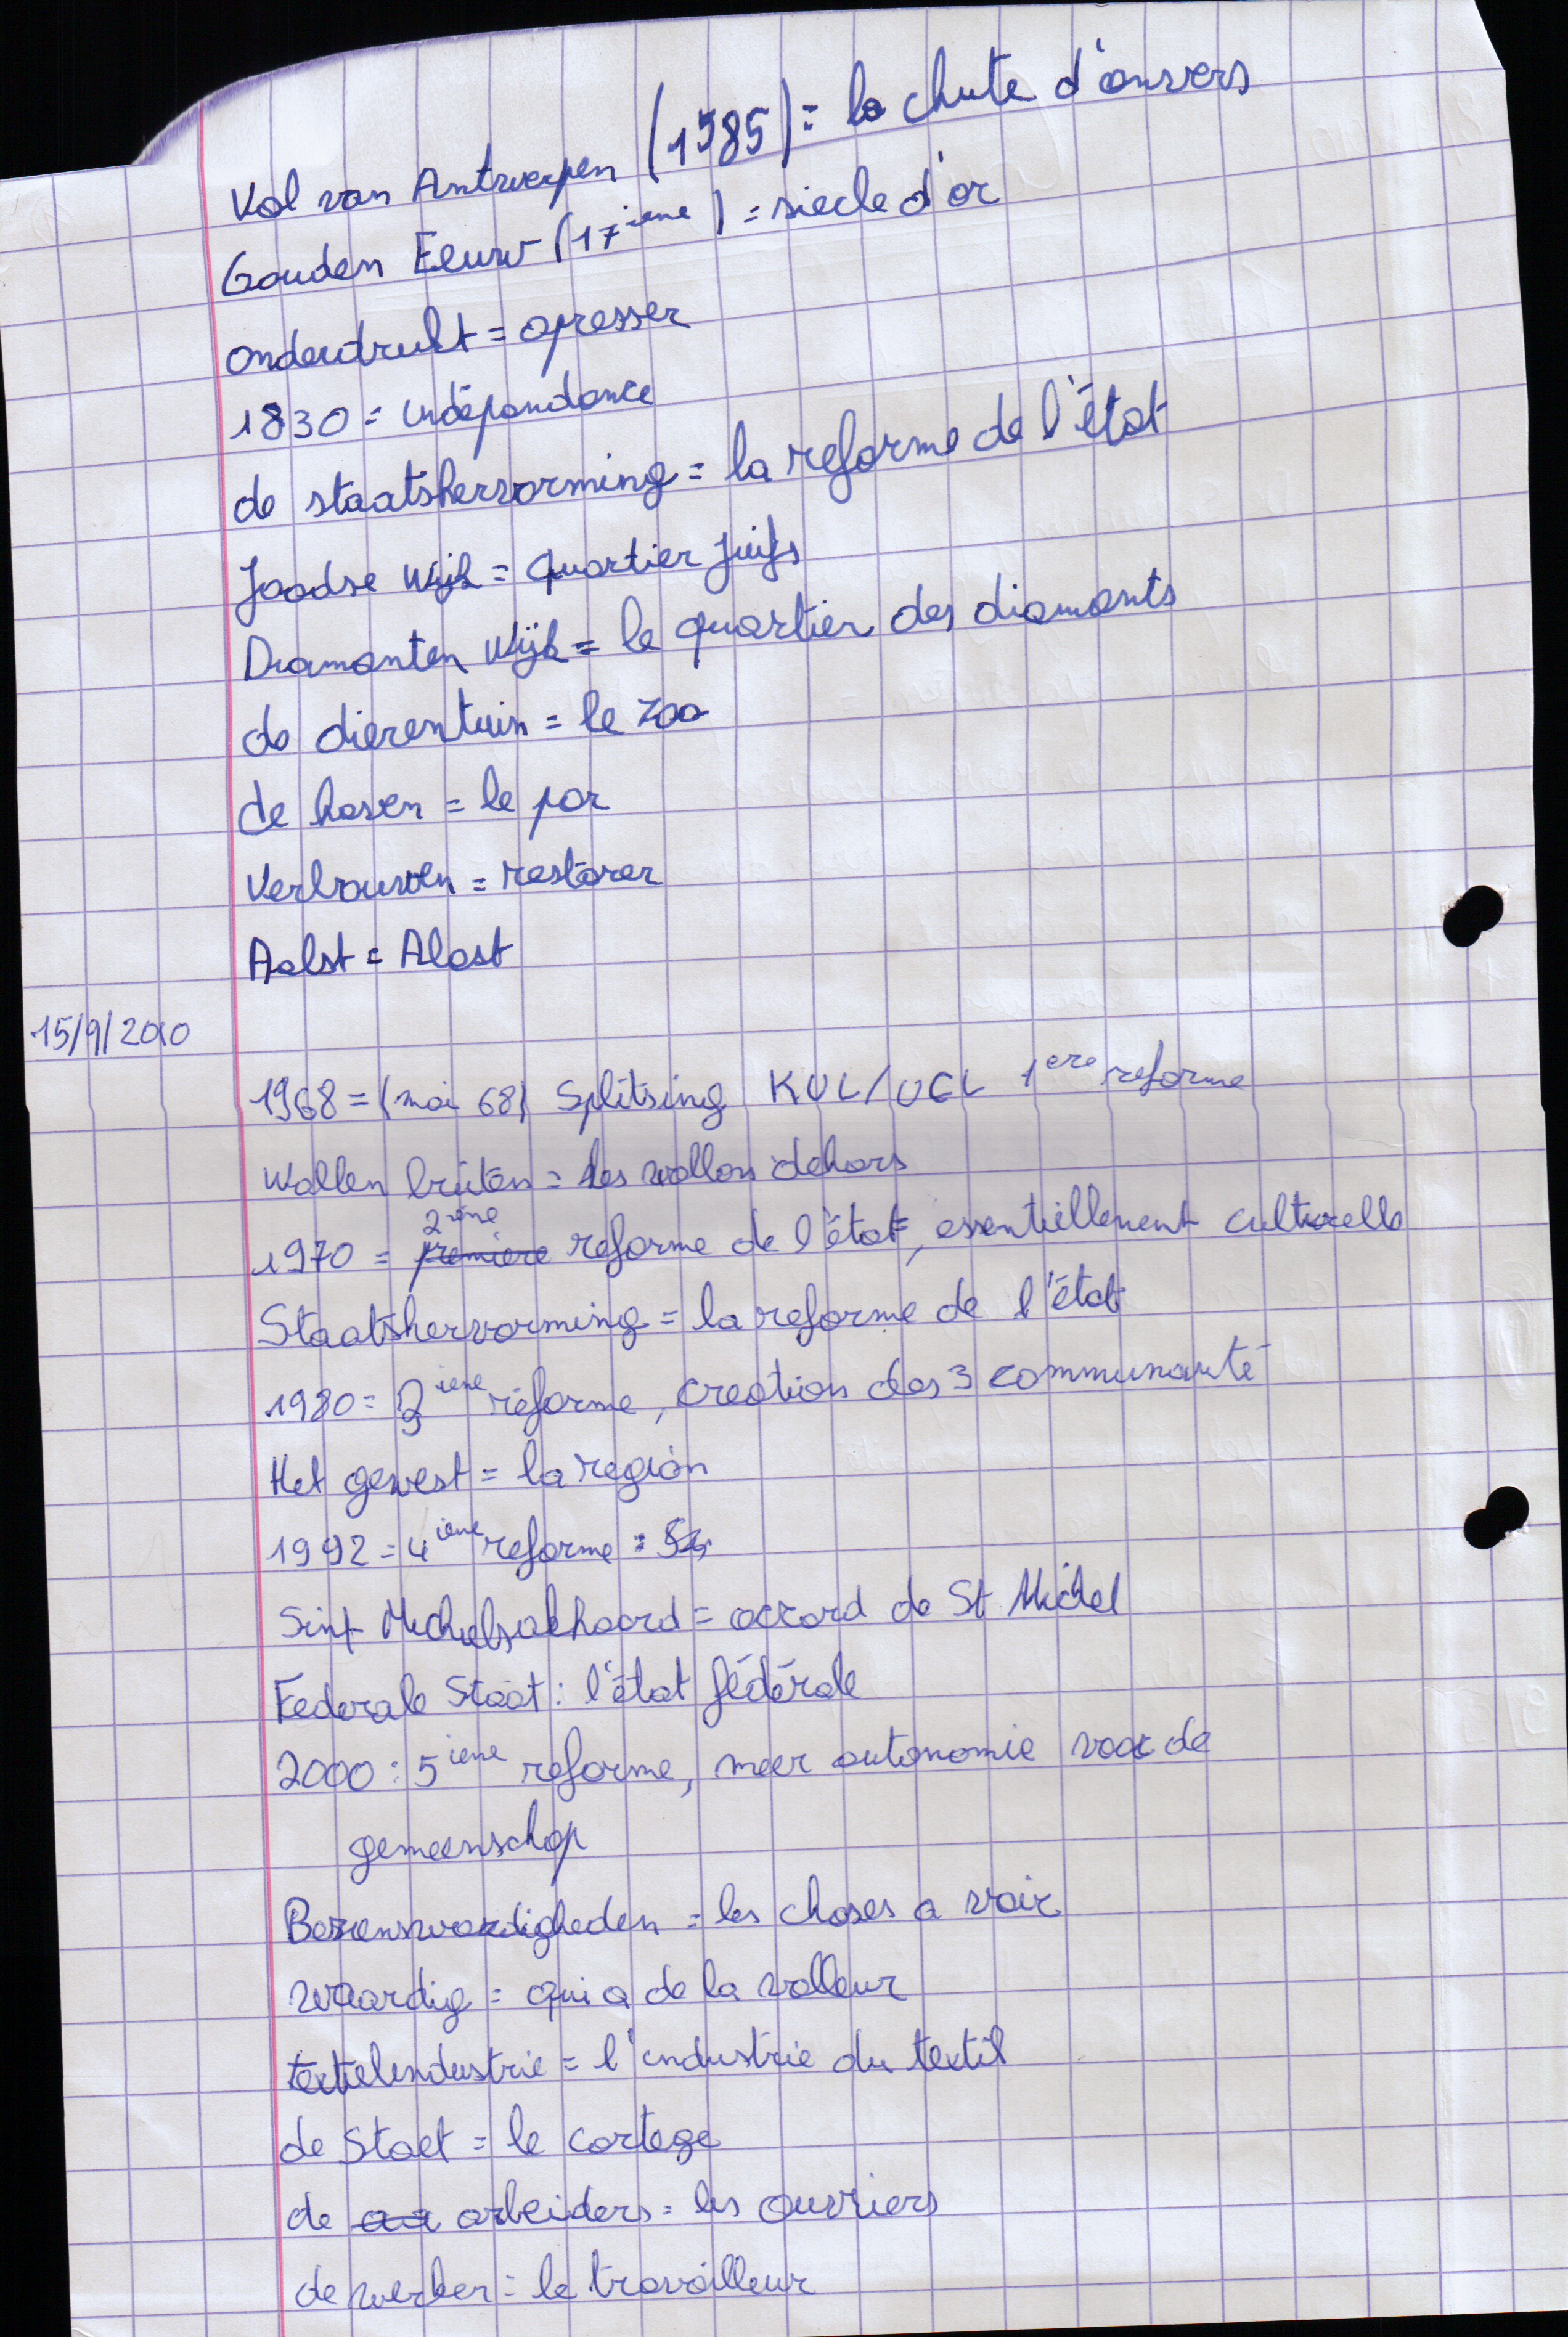 Val van Antwerpen (1585) = la chute d'anvers
Gouden Eeuw (17ieme) = siecle d'or
onderdrukt = opresser
1830 = indépendance
de staatshervorming = la reforme de l'état
Joodse Wijk = quartier juifs
Diamanten Wijk = le quartier des diamants
de dierentuin = le zoo
de haven = le por
Verbouwen = restorer
Aalst = Alost
15/9/2010
1968 = (mai 68) Splitsing KUL/UCL 1ere reforme
Wallen buiten = les wallons dehors
1970 = 2ieme premiere reforme de l'état, essentiellement culturelle
Staatshervorming = la reforme de l'état
1980 = 3ieme réforme, creation des 3 communauté
Het gewest = la region
1992 = 4ieme reforme :
Sint Michielsakkoord = accord de St Michel
Federale Staat : l'état fédérale
2000 : 5ieme reforme, meer autonomie voor de
gemeenschap
Bezienswaardigheden = les choses a voir
waardig = qui a de la valleur
textielindustrie = l'industrie du textil
de Stoet = le cortege
de arbeiders = les ouvriers
de werker = le travailleur